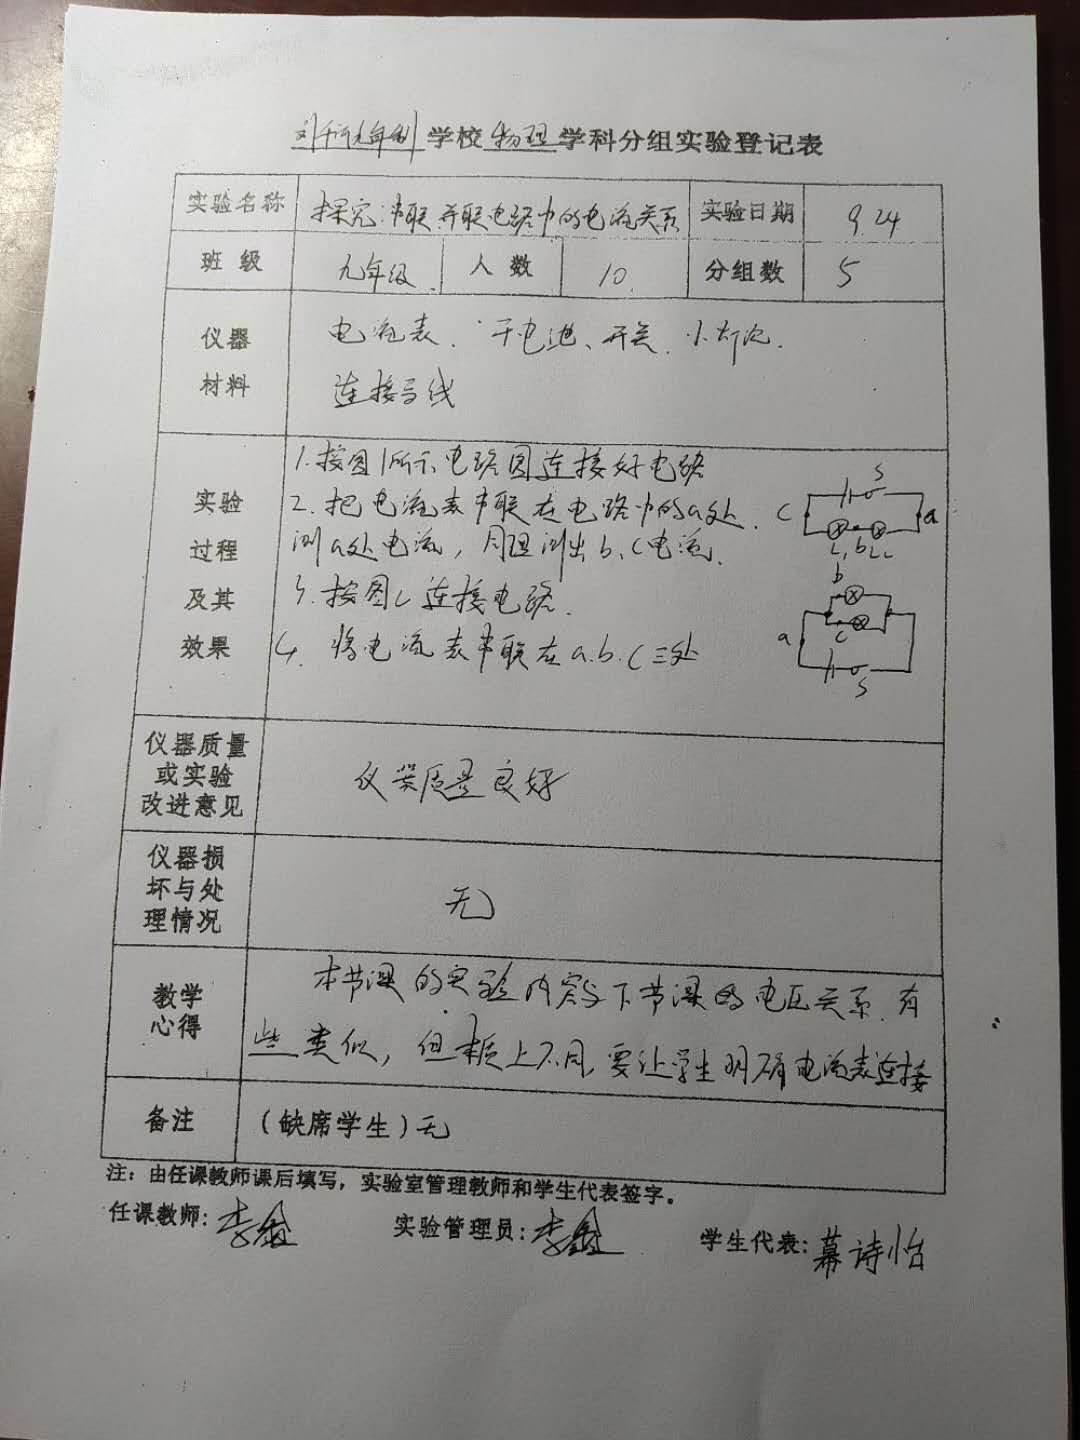 学校物理学科分组实验登记表
实验名称 探究串联并联电路中的电流关系 实验日期 9.24
班级 九年级 人数 10 分组数 5
仪器材料 电流表、干电池、开关、小灯泡、
连接导线
实验过程及其效果
1.按图1所示电路图连接好电路
2.把电流表串联在电路中的a处.
测a处电流,同理测出b、C电流.
3.按图2连接电路.
4.将电流表串联在a.b.C三处
S
C a
L1 b L2
b
a C
S
仪器质量或实验改进意见 仪器质量良好
仪器损坏与处理情况 无
教学心得 本节课的实验内容与下节课的电压关系.有
些类似,但本质上不同,要让学生明确电流表连接
备注 (缺席学生)无
注:由任课教师课后填写,实验室管理教师和学生代表签字。
任课教师:李鑫 实验管理员:李鑫 学生代表:慕诗怡